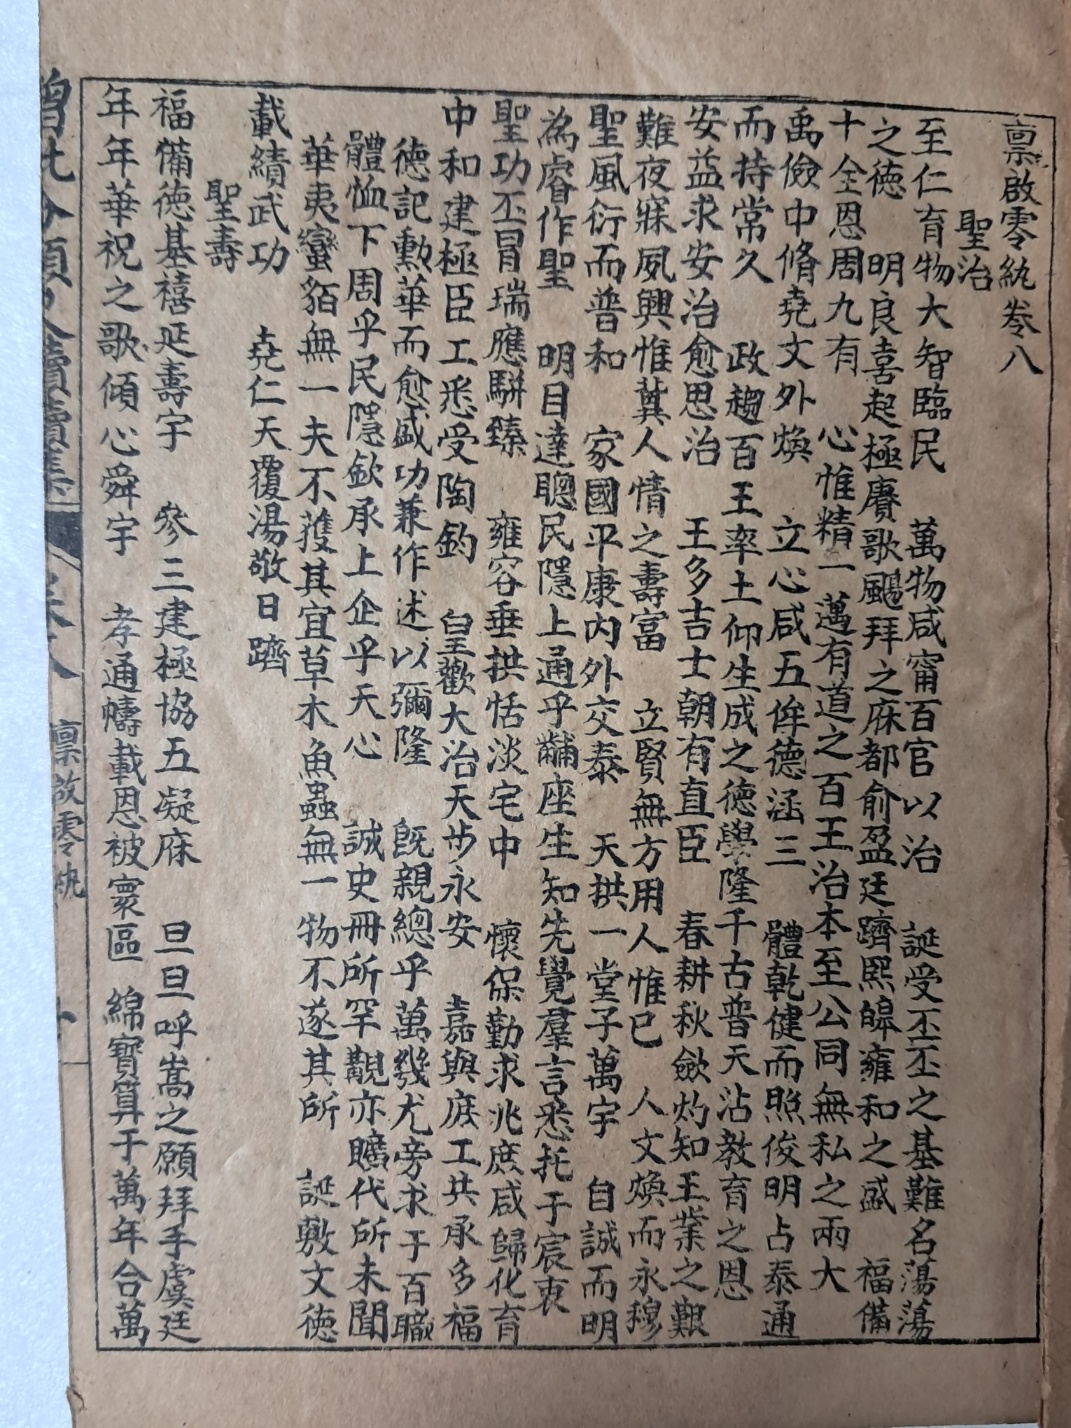 稟啟零紈卷八
聖治
至仁育物大智臨民　萬物咸甯百官以治　誕受丕丕之基難名蕩蕩
之德　明良喜起極賡歌颺拜之庥都俞盈廷躋熙皞雍和之盛　福備
十全恩周九有　心惟精一邁有道之百王治本至公同無私之兩大
禹儉中脩堯文外煥　立心咸五侔德涵三　體乾健而照俊明占泰通
而持常久　政趨百王率土仰生成之德學隆千古普天沾教育之恩
安益求安治愈思治　王多吉士朝有直臣　春耕秋斂灼知王業之艱
難夜寐夙興惟冀人情之壽富　立賢無方用人惟已　人文煥而永穆
聖風衍而普和　家國平康內外交泰　天拱一堂子萬宇　自誠而明
為睿作聖　明目達聰民隱上通乎黼座生知先覺羣言悉托于宸衷
聖功丕冒瑞應駢臻　雍容垂拱恬淡宅中　懷保勤求兆庶咸歸化育
中和建極臣工悉受陶鈞　皇歡大治天步永安　嘉與庶工共承多福
德記勳華而愈盛功兼作述以彌隆　既親總乎萬幾尤旁求于百職
體恤下周乎民隱欽承上企乎天心　誠史冊所罕觀亦曠代所未聞
華夷蠻貊無一夫不獲其宜草木魚蟲無一物不遂其所　誕敷文德
載績武功　堯仁天覆湯敬日躋
聖壽
福備德基禧延壽宇　參三建極協五凝庥　旦旦呼嵩之願拜手虞廷
年年華祝之歌傾心舜宇　孝通幬載恩被寰區　綿寶算于萬年合萬
稟啟零紈